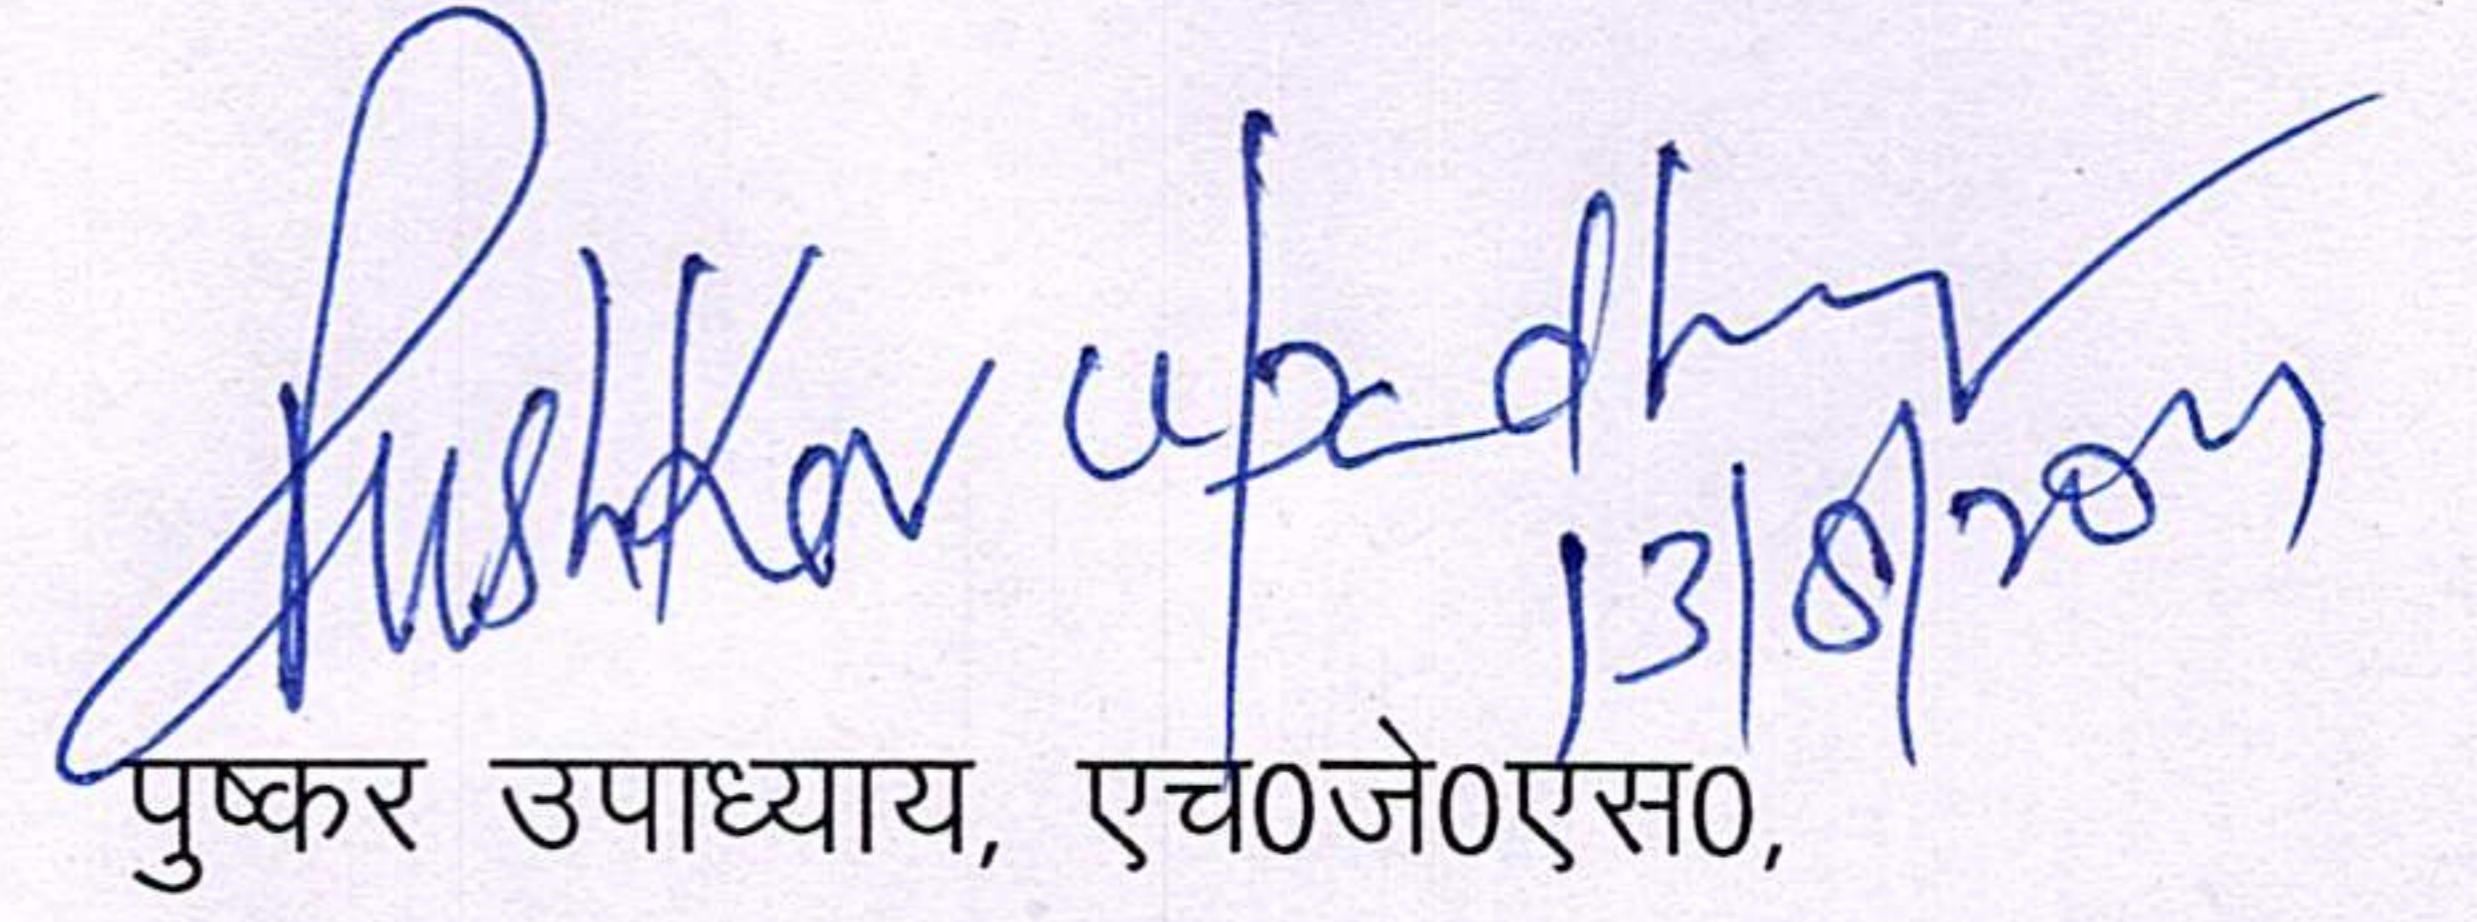 Pushkar Upadhyay
13/8/20
पुष्कर उपाध्याय, एच0जे0एस0,